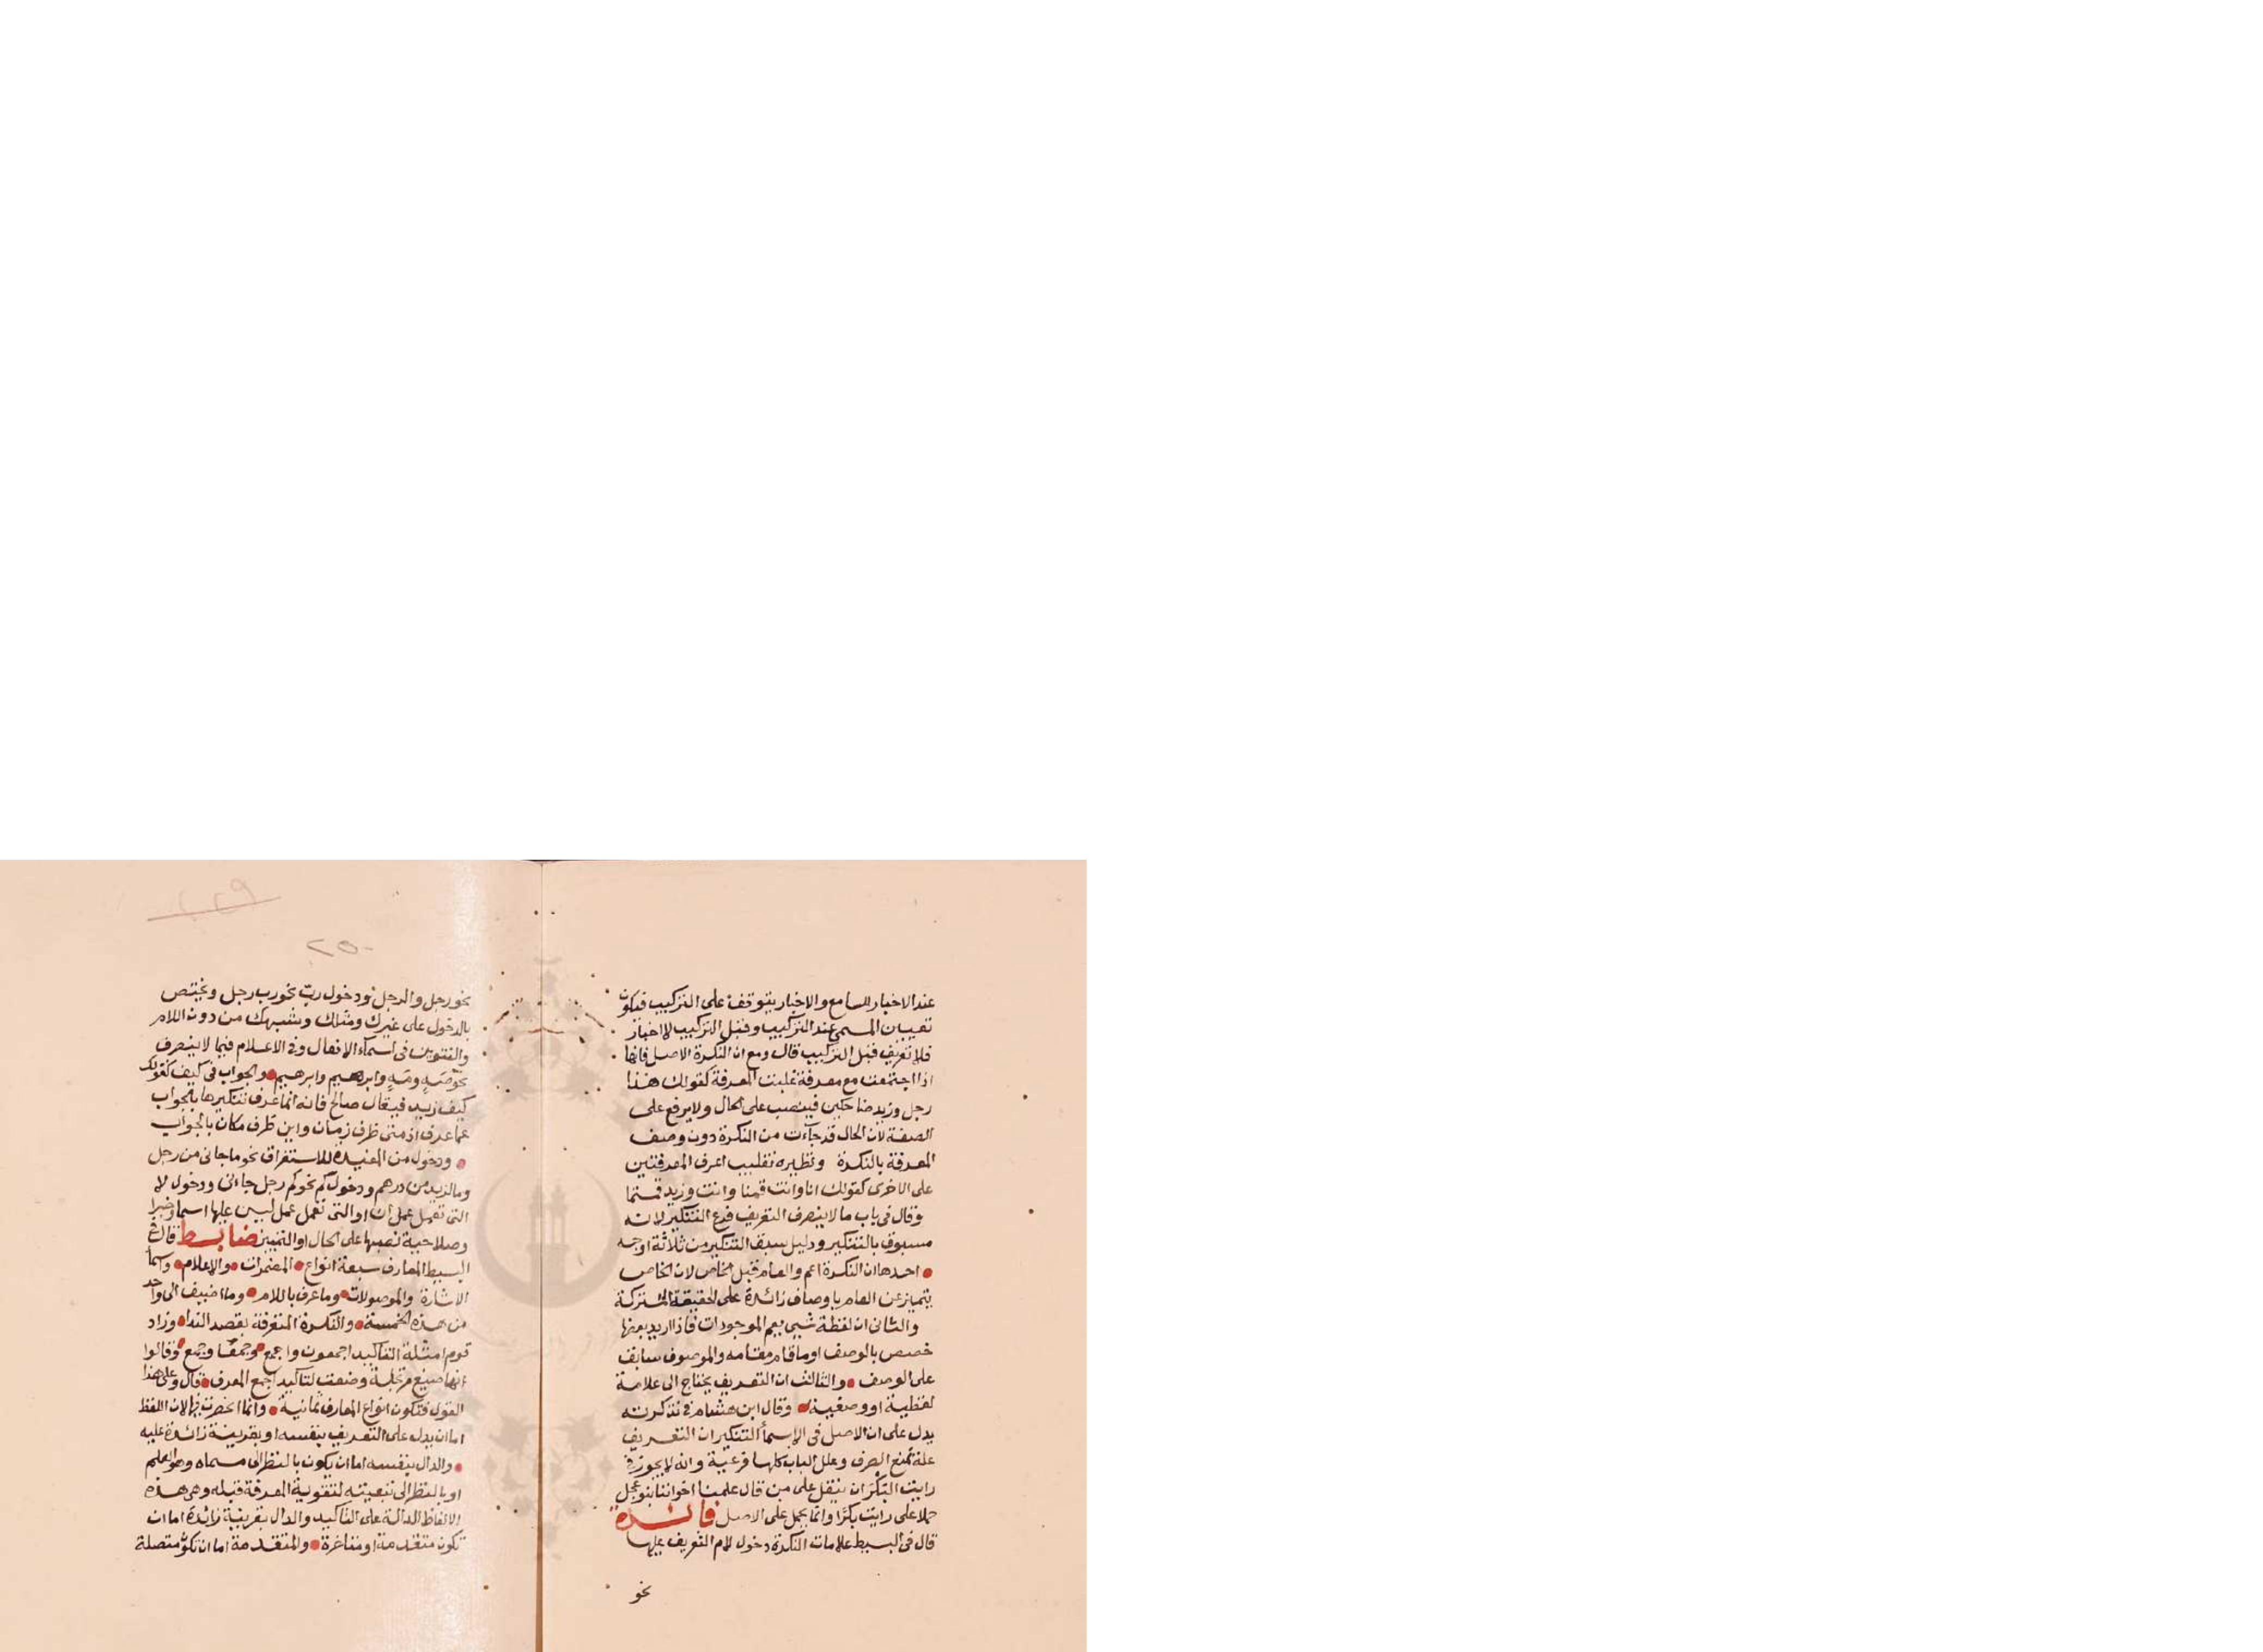 عند الاخبار للسامع والاخبار يتوقف على التركيب فيكون
تعيين المسمى عند التركيب وقبل التركيب لا اخبار
فلا تعريف قبل التركيب قال ومع ان النكرة الاصل فانها
اذا اجتمعت مع معرفة غلبت المعرفة كقولك هذا
رجل وزيد ضاحكين فينصب على الحال ولا يرفع على
الصفة لان الحال قد جآءت من النكرة دون وصف
المعرفة بالنكرة ونظيره تغليب اعرف المعرفتين
على الاخرى كقولك انا وانت قمنا وانت وزيد قمتما
وقال فى باب ما لا ينصرف التعريف فرع التنكير لانه
مسبوق بالتنكير ودليل سبق التنكير من ثلاثة اوجه
احدها ان النكرة اعم والعام قبل الخاص لان الخاص
يتميز عن العام باوصاف زائدة على الحقيقة المشتركة
والثانى ان لفظة شيى يعم الموجودات فاذا اريد بعضها
خصص بالوصف او ما قام مقامه والموصوف سابق
على الوصف والثالث ان التعريف يحتاج الى علامة
لفظية او وضعية وقال ابن هشام فى تذكرته
يدل على ان الاصل فى الاسمآ التنكير ان التعريف
علة تمنع الصرف وعلل الباب كلها فرعية وانه لا يجوز فى
رايت البكر ان ينقل على من قال علمنا اخواننا بنو عجل
حملا على رايت بكرا وانما يحمل على الاصل فائدة
قال فى البسيط علامات النكرة دخول لام التعريف عليها
نحو
٢٥٠
نحو رجل والرجل ودخول ربّ نحو رب رجل ويختص
بالدخول على غيرك ومثلك وشبهك من دون اللام
والتنوين فى اسمآء الافعال وفى الاعلام فيما لا ينصرف
نحو صَهٍ ومَهٍ وابرهيم وابرهيم والجواب فى كيف كقولك
كيف زيد فيقال صالح فانه انما عرف تنكيرها بالجواب
كما عرف ان متى ظرف زمان واين ظرف مكان بالجواب
ودخول من المفيدة للاستغراق نحو ما جانى من رجل
وما لزيد من درهم ودخول كم نحو كم رجل جاءنى ودخول لا
التى تعمل عمل ان او التى تعمل عمل ليس عليها اسما وخبرا
وصلاحية نصبها على الحال او التمييز ضابط قال فى
البسيط المعارف سبعة انواع المضمرات والاعلام واسما
الاشارة والموصولات وما عرف باللام وما اضيف الى واحد
من هذه الخمسة والنكرة المتعرفة بقصد الندا وزاد
قوم امثلة التاكيد اجمعون واجمع وجمعا وجمع وقالوا
انها صيغ مرتجلة وضعت لتاكيد اجمع المعرف قال وعلى هذا
القول فتكون انواع المعارف ثمانية وانما انحصرت فيها لان اللفظ
اما ان يدل على التعريف بنفسه او بقرينة زائدة عليه
والدال بنفسه اما ان يكون بالنظر الى مسماه وهو العلم
او بالنظر الى تبعيته لتقوية المعرفة قبله وهى هذه
الالفاظ الدالة على التاكيد والدال بقرينة زائدة اما ان
تكون متقدمة او متاخرة والمتقدمة اما ان تكون متصلة